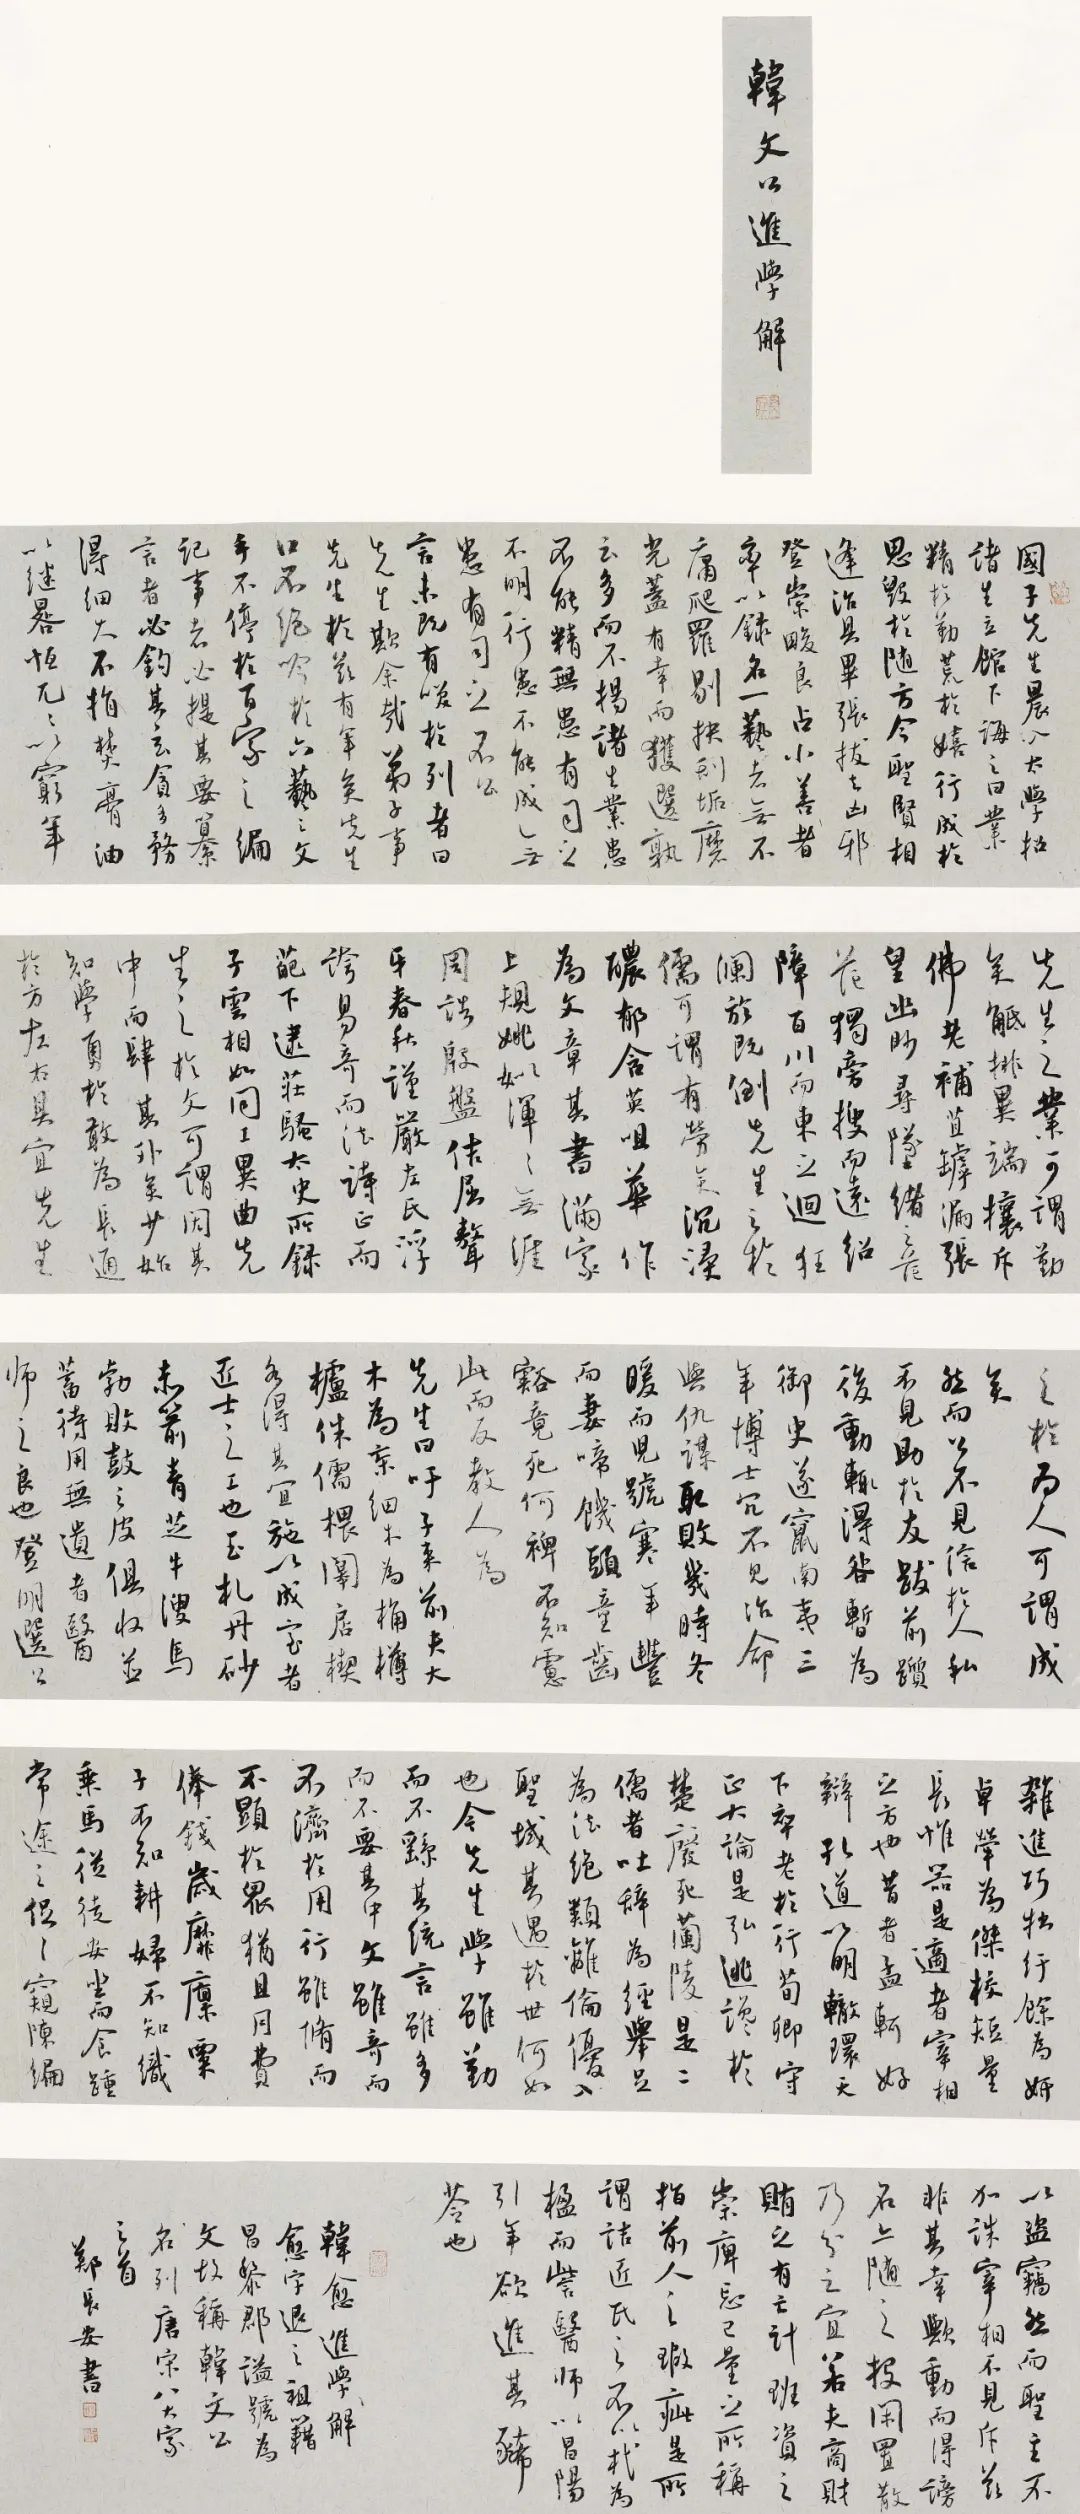 韓文公進學解
國子先生晨入太學招
諸生立館下誨之曰業
精於勤荒於嬉行成於
思毀於隨方今聖賢相
逢治具畢張拔去凶邪
登崇畯良占小善者
率以錄名一藝者無不
庸爬羅剔抉刮垢磨
光蓋有幸而獲選孰
云多而不揚諸生業患
不能精無患有司之
不明行患不能成無
患有司之不公
言未既有笑於列者曰
先生欺余哉弟子事
先生於茲有年矣先生
口不絕吟於六藝之文
手不停於百家之編
記事者必提其要纂
言者必鉤其玄貪多務
得細大不捐焚膏油
以繼晷恒兀兀以窮年
先生之業可謂勤
矣觝排異端攘斥
佛老補苴罅漏張
皇幽眇尋墜緒之茫
茫獨旁搜而遠紹
障百川而東之迴狂
瀾於既倒先生之於
儒可謂有勞矣沉浸
醲郁含英咀華作
為文章其書滿家
上規姚姒渾渾無涯
周誥殷盤佶屈聱
牙春秋謹嚴左氏浮
誇易奇而法詩正而
葩下逮莊騷太史所錄
子雲相如同工異曲先
生之於文可謂閎其
中而肆其外矣少始
知學勇於敢為長通
於方左右具宜先生
之於為人可謂成
矣
然而公不見信於人私
不見助於友跋前躓
後動輒得咎暫為
御史遂竄南夷三
年博士冗不見治命
與仇謀取敗幾時冬
暖而兒號寒年豐
而妻啼饑頭童齒
豁竟死何裨不知慮
此而反教人為
先生曰吁子來前夫大
木為杗細木為桷欂
櫨侏儒椳闑扂楔
各得其宜施以成室者
匠士之工也玉札丹砂
赤箭青芝牛溲馬
勃敗鼓之皮俱收並
蓄待用無遺者醫
師之良也登明選公
雜進巧拙紆餘為妍
卓犖為傑校短量
長惟器是適者宰相
之方也昔者孟軻好
辯孔道以明轍環天
下卒老於行荀卿守
正大論是弘逃讒於
楚廢死蘭陵是二
儒者吐辭為經舉足
為法絕類離倫優入
聖域其遇於世何如
也今先生學雖勤
而不繇其統言雖多
而不要其中文雖奇而
不濟於用行雖脩而
不顯於眾猶且月費
俸錢歲靡廩粟
子不知耕婦不知織
乘馬從徒安坐而食踵
常途之促促窺陳編
以盜竊然而聖主不
加誅宰相不見斥茲
非其幸歟動而得謗
名亦隨之投閑置散
乃分之宜若夫商財
賄之有亡計班資之
崇庳忘己量之所稱
指前人之瑕疵是所
謂詰匠氏之不以杙為
楹而訾醫師以昌陽
引年欲進其豨
苓也
韓愈進學解
愈字退之祖籍
昌黎郡謚號為
文故稱韓文公
名列唐宋八大家
之首
鄭長安書